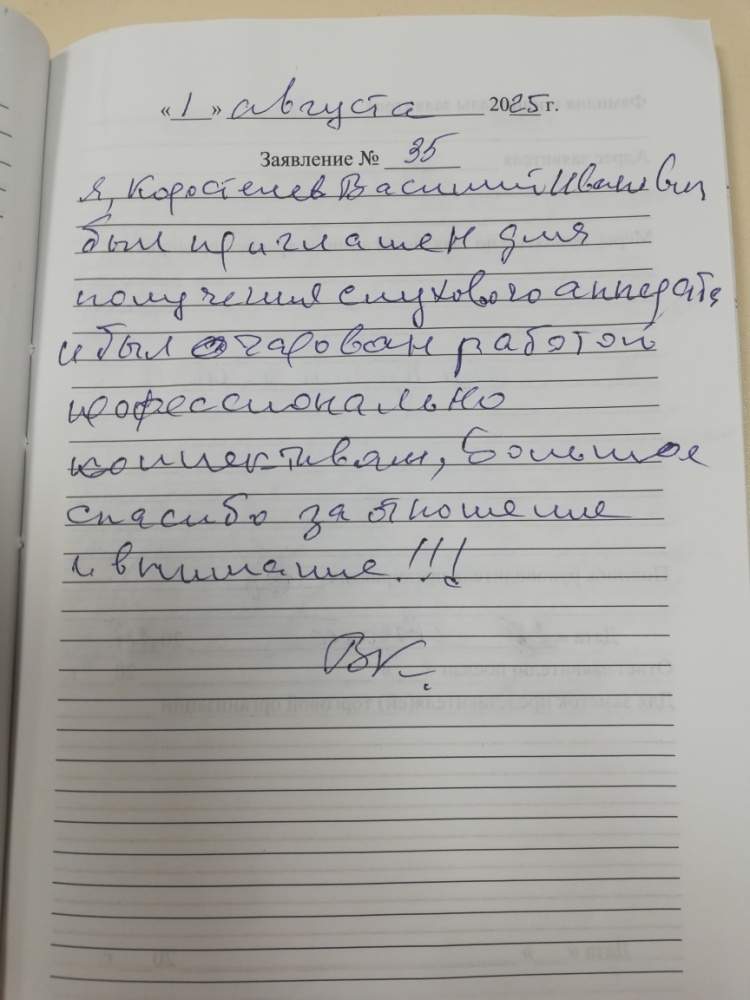 «1» августа 2025 г.
Заявление № 35
Я, Коростелев Василий Иванович
был приглашен для
получения слухового аппарата
и был очарован работой
профессионально
коллективам, большое
спасибо за отношение
и внимание!!!